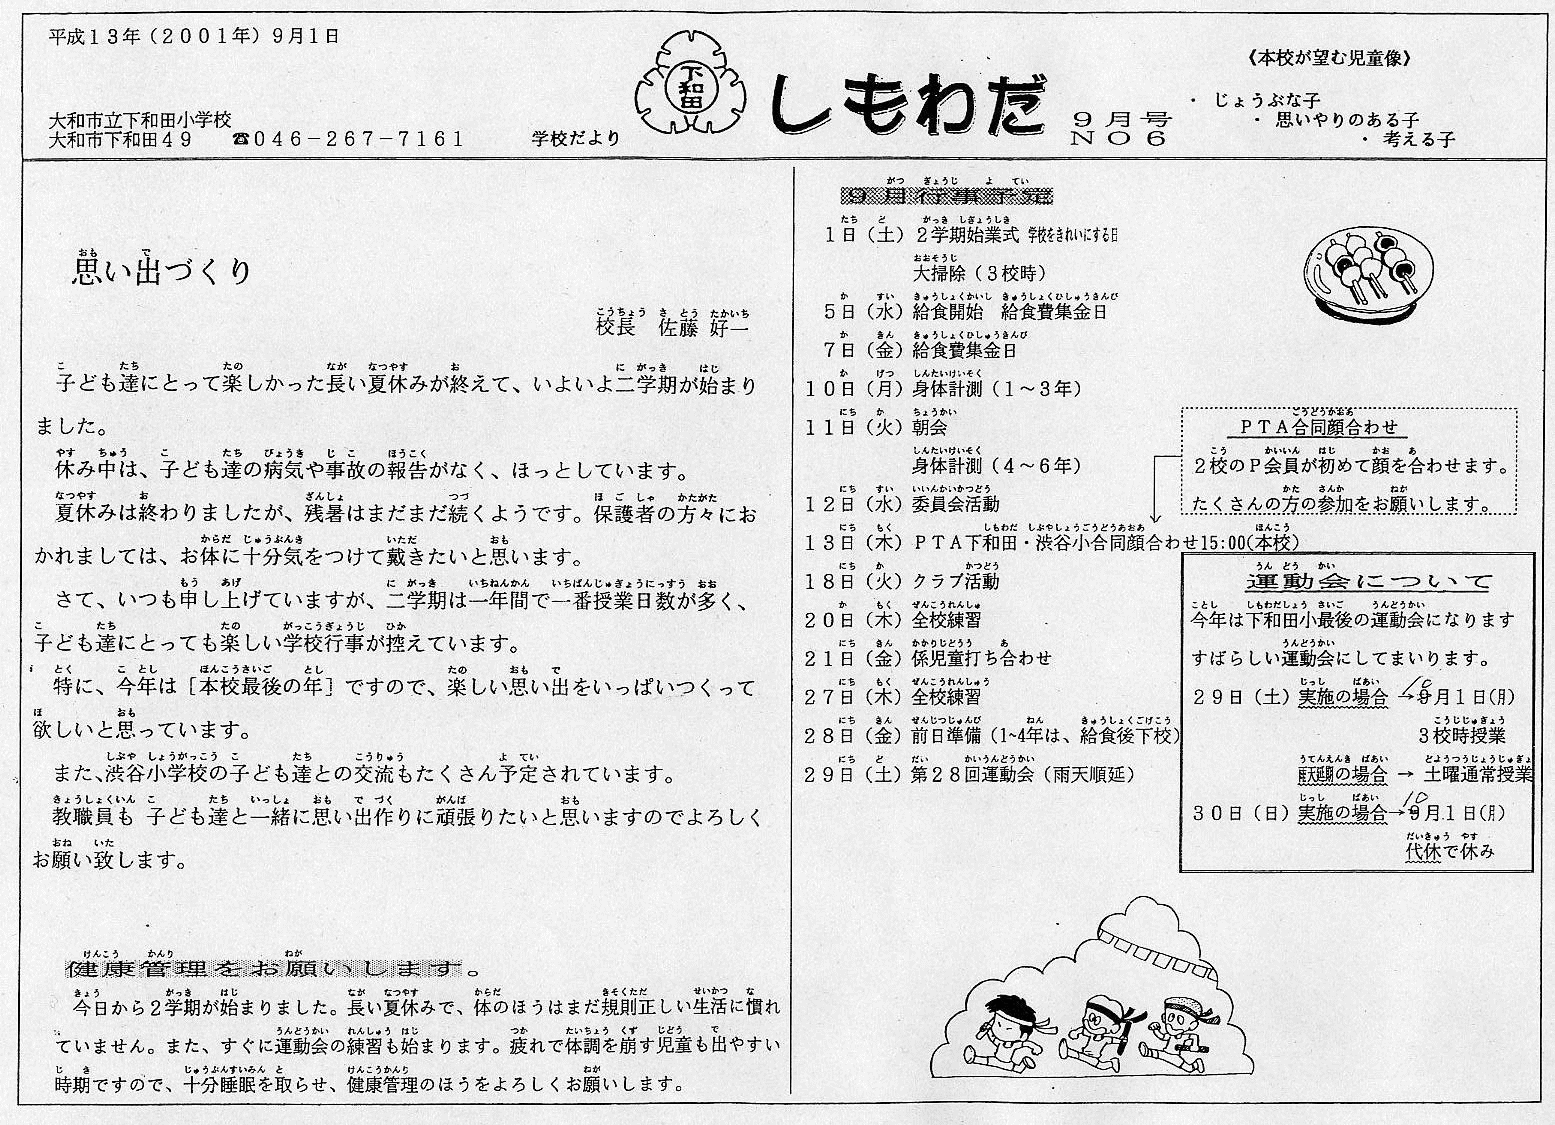 平成13年（2001年）9月1日
大和市立下和田小学校
大和市下和田49　☎046－267－7161
学校だより
下和田
しもわだ
9月号
NO6
《本校が望む児童像》
・じょうぶな子
・思いやりのある子
・考える子
思い出づくり
校長　佐藤　好一
子ども達にとって楽しかった長い夏休みが終えて、いよいよ二学期が始まり
ました。
休み中は、子ども達の病気や事故の報告がなく、ほっとしています。
夏休みは終わりましたが、残暑はまだまだ続くようです。保護者の方々にお
かれましては、お体に十分気をつけて戴きたいと思います。
さて、いつも申し上げていますが、二学期は一年間で一番授業日数が多く、
子ども達にとっても楽しい学校行事が控えています。
特に、今年は［本校最後の年］ですので、楽しい思い出をいっぱいつくって
欲しいと思っています。
また、渋谷小学校の子ども達との交流もたくさん予定されています。
教職員も 子ども達と一緒に思い出作りに頑張りたいと思いますのでよろしく
お願い致します。
健康管理をお願いします。
今日から2学期が始まりました。長い夏休みで、体のほうはまだ規則正しい生活に慣れ
ていません。また、すぐに運動会の練習も始まります。疲れで体調を崩す児童も出やすい
時期ですので、十分睡眠を取らせ、健康管理のほうをよろしくお願いします。
9月行事予定
1日（土）2学期始業式 学校をきれいにする日
大掃除（3校時）
5日（水）給食開始　給食費集金日
7日（金）給食費集金日
10日（月）身体計測（1～3年）
11日（火）朝会
身体計測（4～6年）
12日（水）委員会活動
13日（木）PTA下和田・渋谷小合同顔合わせ15:00(本校)
18日（火）クラブ活動
20日（木）全校練習
21日（金）係児童打ち合わせ
27日（木）全校練習
28日（金）前日準備（1~4年は、給食後下校）
29日（土）第28回運動会（雨天順延）
PTA合同顔合わせ
2校のP会員が初めて顔を合わせます。
たくさんの方の参加をお願いします。
運動会について
今年は下和田小最後の運動会になります
すばらしい運動会にしてまいります。
29日（土）実施の場合 →10月1日(月)
3校時授業
雨天延期の場合 → 土曜通常授業
30日（日）実施の場合→10月1日(月)
代休で休み